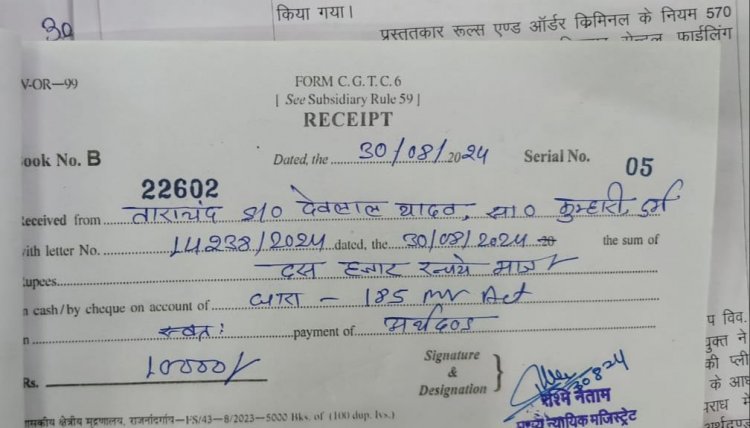 किया गया।
30
प्रस्ततकार रूल्स एण्ड ऑर्डर क्रिमिनल के नियम 570
फाईलिंग
V-OR—99
FORM C.G.T.C.6
[ See Subsidiary Rule 59 ]
RECEIPT
ook No. B
Dated, the 30/08/2024
Serial No. 05
22602
Received from ताराचंद S/O देवलाल यादव, सा0 कुम्हारी, दुर्ग
ith letter No. 14238/2024 dated, the 30/08/2024 20 the sum of
Rupees दस हजार रूपये मात्र
n cash/by cheque on account of धारा - 185 mv Act
n स्वतः payment of अर्थदण्ड
Rs. 10000/
Signature
&
Designation
30824
रश्मि नेताम
मुख्य न्यायिक मजिस्ट्रेट
ासकीय क्षेत्रीय मुद्रणालय, राजनांदगांव—FS/43—8/2023—5000 Bks. of (100 dup. lvs.)
प विव.
युक्त ने
की प्ली
के आध
पराध में
अर्थदण्ड